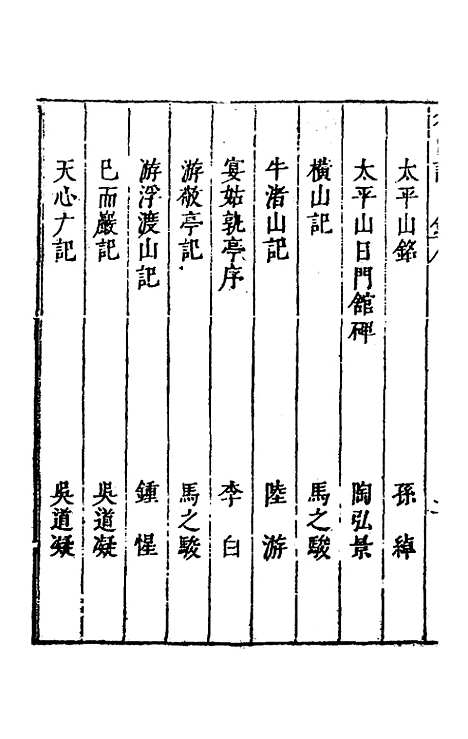 太平山銘 孫綽
太平山日門館碑 陶弘景
橫山記 馬之駿
牛渚山記 陸游
宴姑孰亭序 李白
游敬亭記 馬之駿
游浮渡山記 鍾惺
已而巖記 吳道凝
天心广記 吳道凝